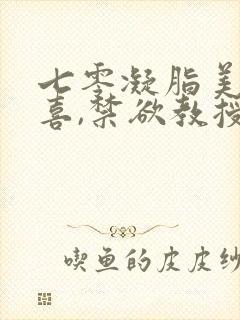 七零凝脂美
喜,禁欲教授
喫鱼的皮皮纱